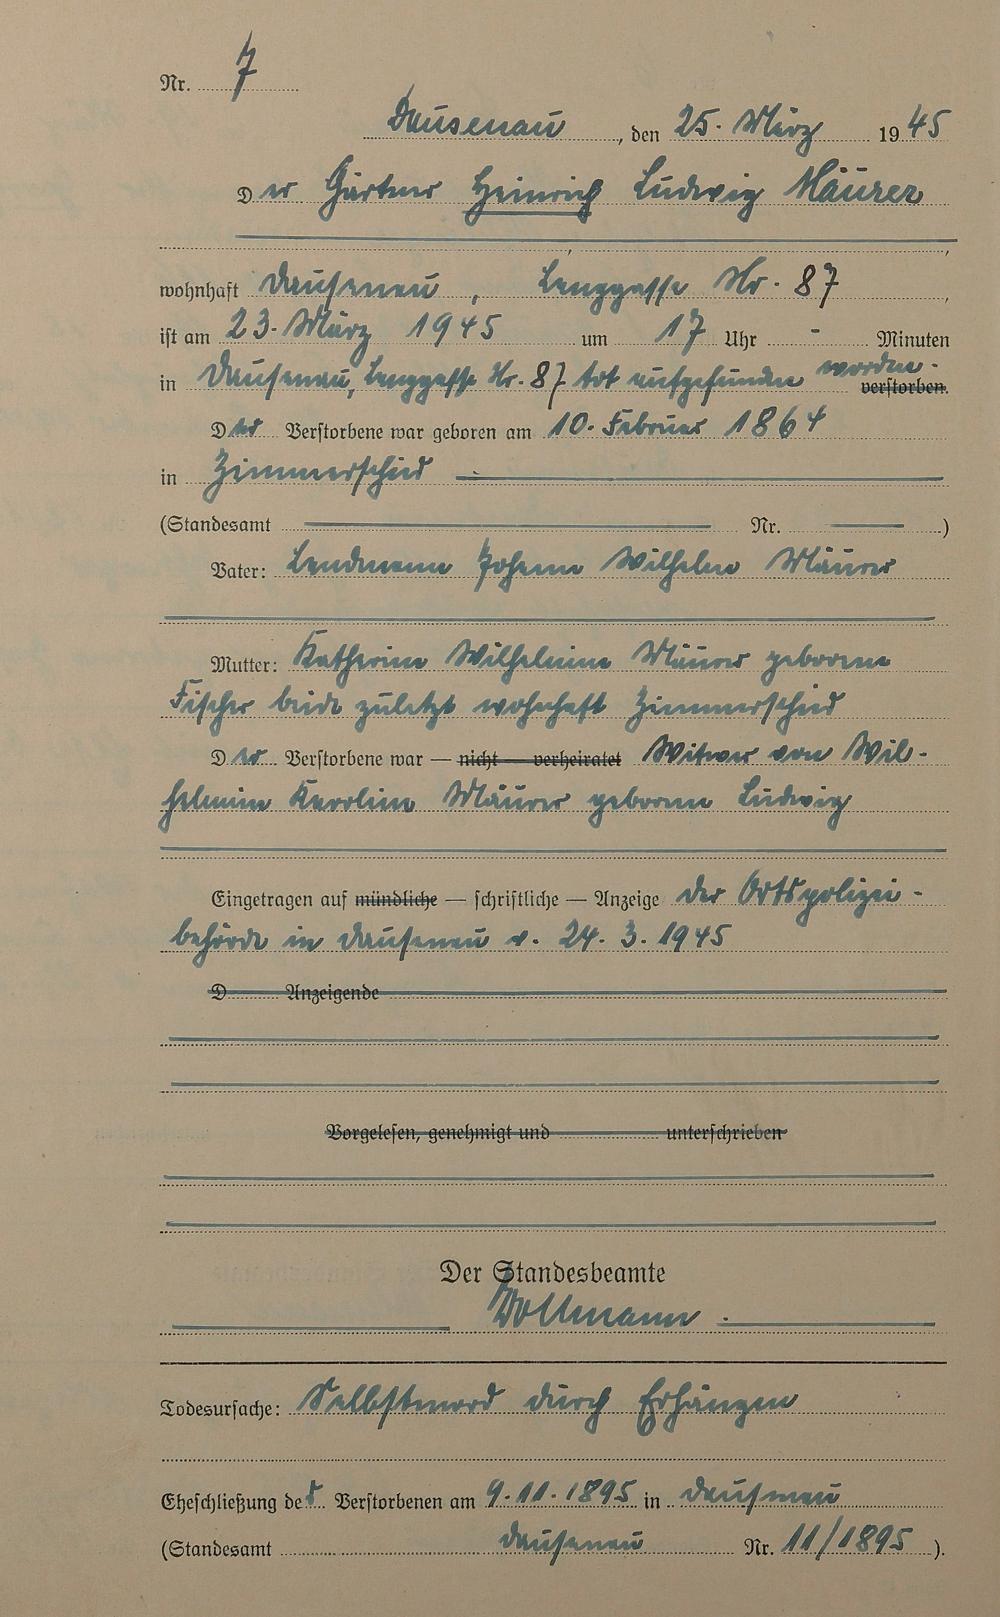 Nr. 7
Dausenau, den 25. März 1945
Der Gärtner Heinrich Ludwig Mäurer
wohnhaft Dausenau, Langgasse Nr. 87,
ist am 23. März 1945 um 17 Uhr - Minuten
in Dausenau, Langgasse Nr. 87 tot aufgefunden worden. verstorben.
Der Verstorbene war geboren am 10. Februar 1864
in Zimmerschied
(Standesamt Nr. )
Vater: Landmann Johann Wilhelm Mäurer
Mutter: Katharina Wilhelmine Mäurer geborene
Fischer beide zuletzt wohnhaft Zimmerschied
Der Verstorbene war — nicht — verheiratet Witwer von Wil-
helmine Karoline Mäurer geborene Ludwig
Eingetragen auf mündliche — schriftliche — Anzeige der Ortspolizei-
behörde in Dausenau v. 24. 3. 1945
D Anzeigende
Vorgelesen, genehmigt und unterschrieben
Der Standesbeamte
Todesursache: Selbstmord durch Erhängen
Eheschließung des Verstorbenen am 9.11.1895 in Dausenau
(Standesamt Dausenau Nr. 11/1895 ).